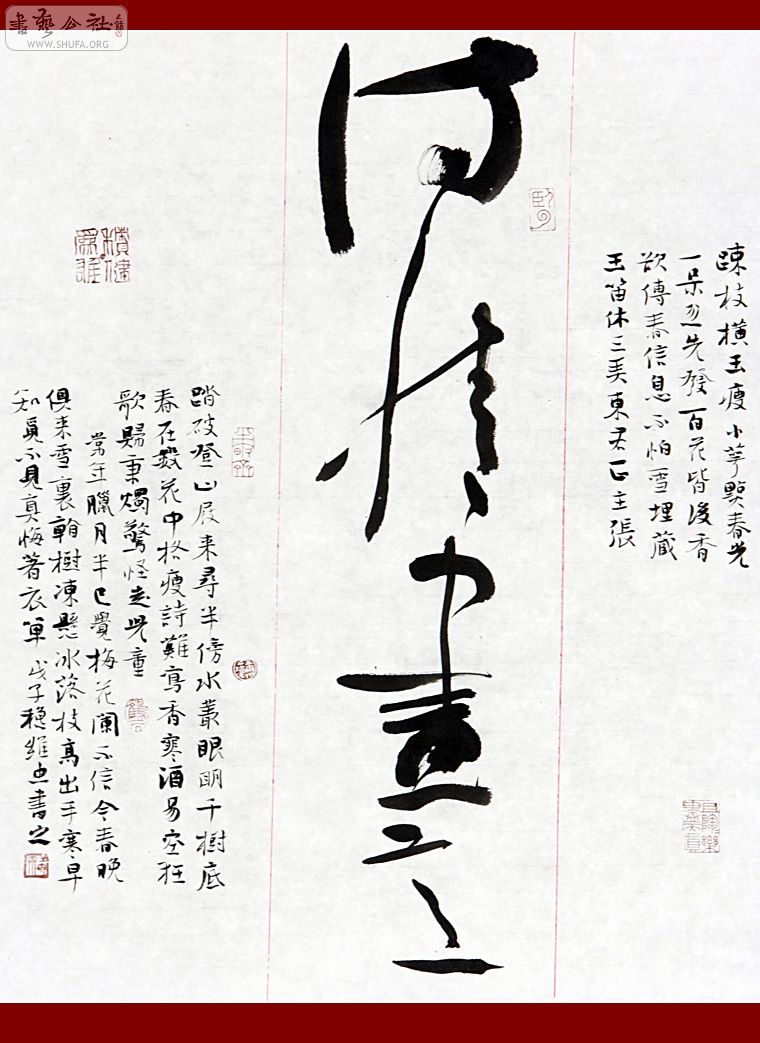 疎枝橫玉瘦小萼點春光
一朵忽先發百花皆後香
欲傳春信息不怕雪埋藏
玉笛休三弄東君正主張
情畫
踏破登山屐來尋半傍水叢眼明千樹底
春在數花中格瘦詩難寫香寒酒易空狂
歌歸秉燭驚怪走兒童
常年臘月半已覺梅花闌不信今春晚
俱來雪裏樹凍懸冰落枝高出手寒早
知覓不見真悔著衣單 戊子穆維書之
書藝公社
WWW.SHUFA.ORG